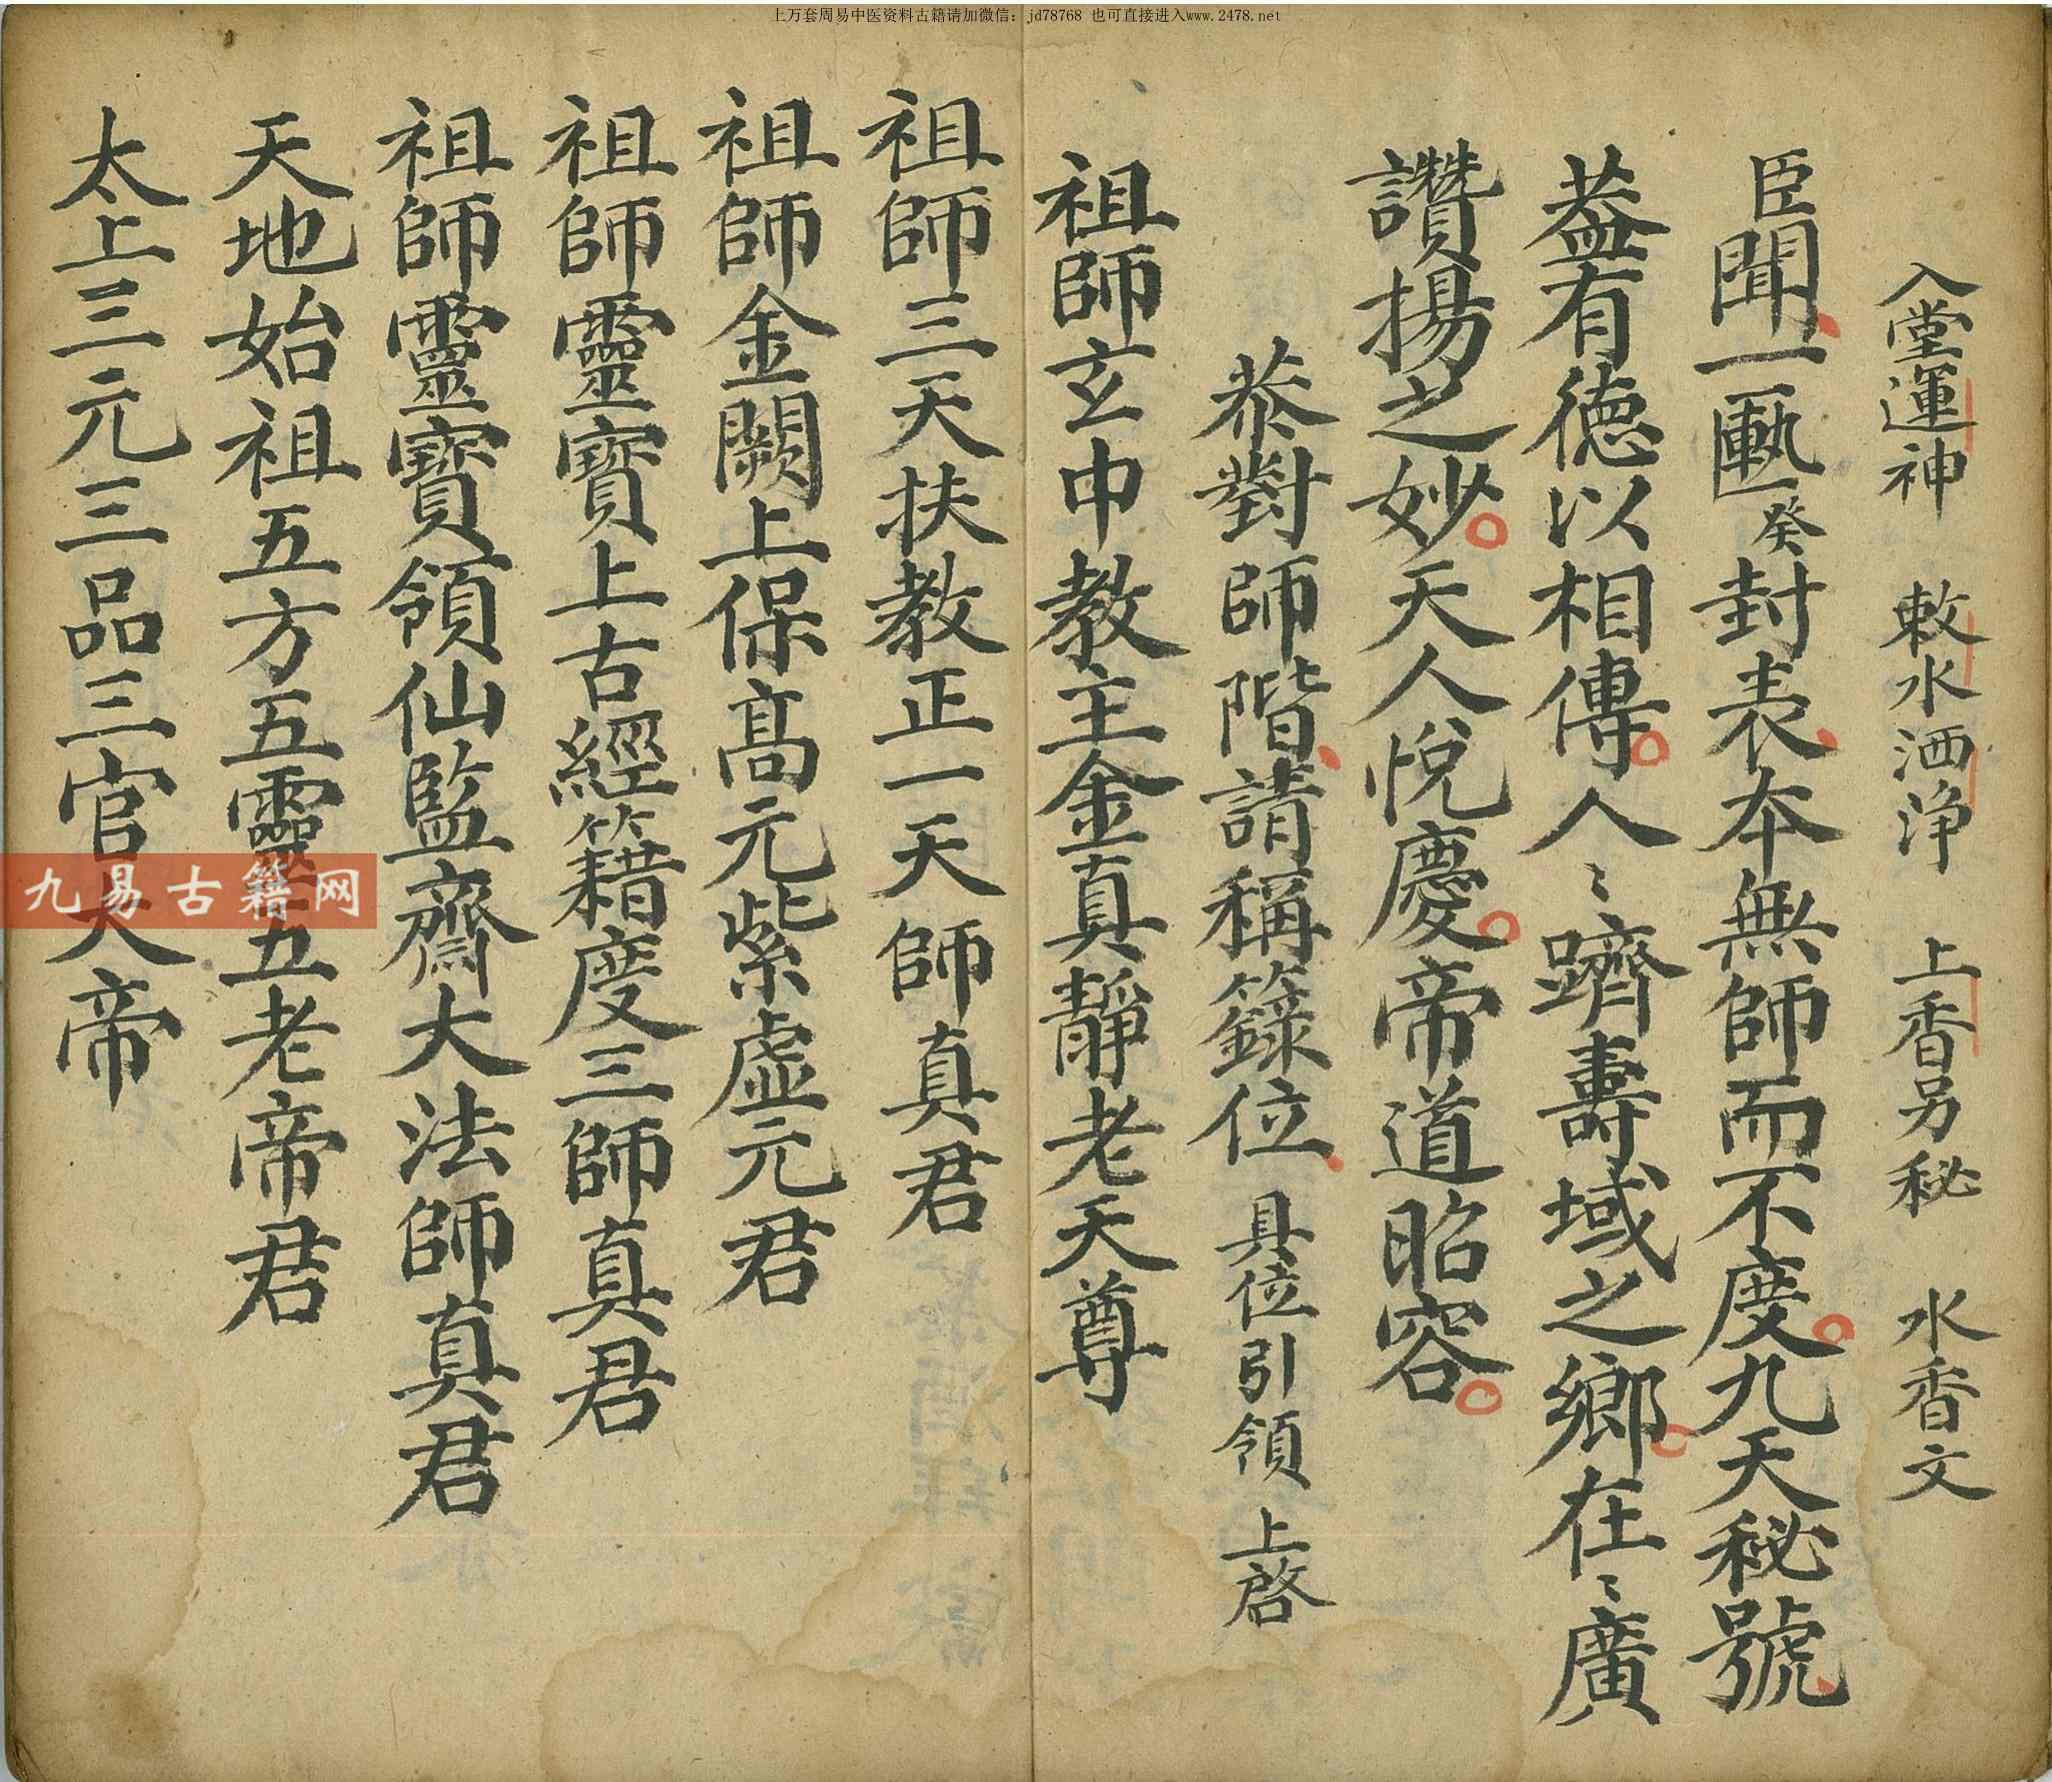 上万套周易中医资料古籍请加微信：jd78768 也可直接进入www.2478.net
入堂運神 敕水洒净 上香另秘 水香文
臣聞一匭癸封表本無師而不度九天秘號
葢有德以相傳人〻躋壽域之鄉在〻廣
讚揚之妙天人悅慶帝道昭容
恭對師階請稱籙位 具位引領 上啓
祖師玄中教主金真靜老天尊
祖師三天扶教正一天師真君
祖師金闕上保高元紫虛元君
祖師靈寶上古經籍度三師真君
祖師靈寶領仙監齋大法師真君
天地始祖五方五靈五老帝君
太上三元三品三官大帝
九易古籍网